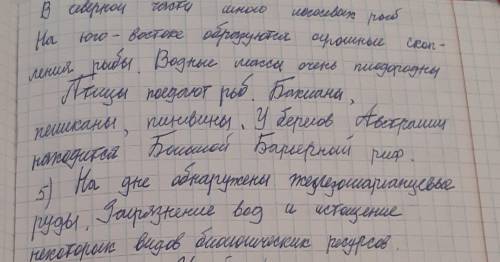 В северной части много лососевых рыб
На юго-востоке образуются огромные скоп-
ления рыбы. Водные массы очень плодородны
Птицы поедают рыб. Бакланы,
пеликаны, пингвины. У берегов Австралии
находится Большой Барьерный риф.
5) На дне обнаружены железомарганцевые
руды. Загрязнение вод и истощение
некоторых видов биологических ресурсов.